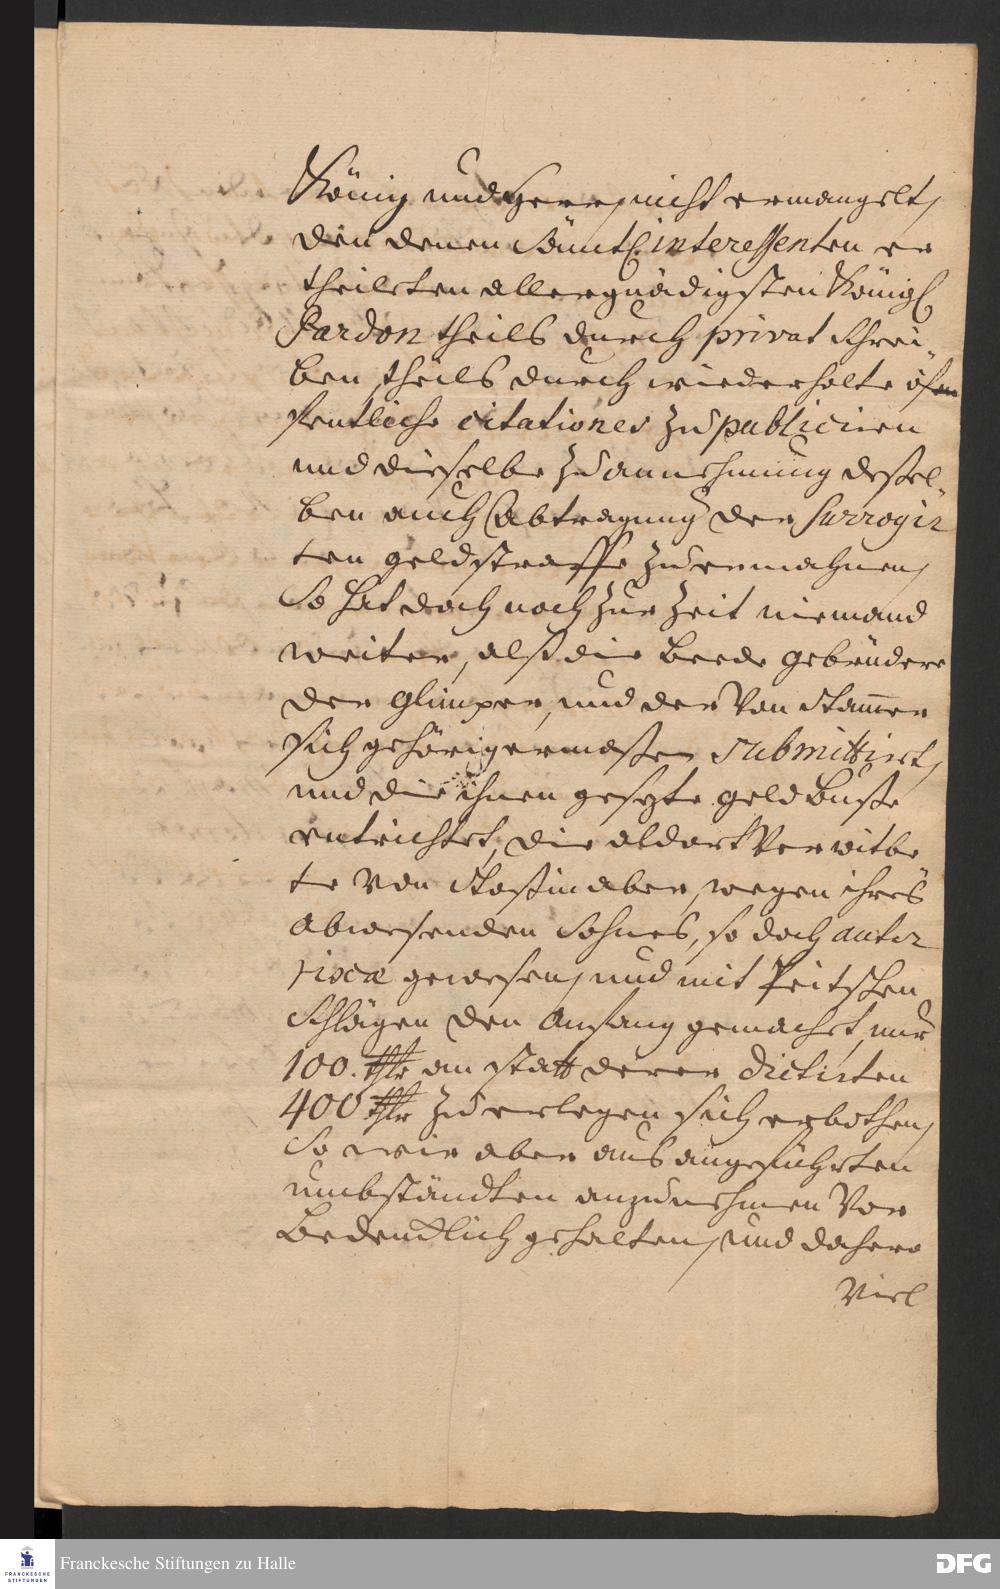 König und Herr, nicht ermangelt,
den denen sämtl. interessenten er
theileten allergnädigsten Königl.
Pardon theils durch privat schrei-
ben, theils durch wiederholte öf
fentliche citationes zu publiciren
und dieselbe zu annehmung deßel-
ben auch abtragung der surrogir
ten geldstraffe zu ermahnen,
So hat doch noch zur Zeit niemand
weiter, alß die beede Gebrüdere
der Glümper, und der von Stamer
sich gehörigermaßen submittiret,
und die ihnen gesezte geldbuße
entrichtet, die aldort verwitbe
te von aber, wegen ihres
abwesenden Sohnes, so doch autor
rixæ gewesen, und mit Peitschen
schlägen den Anfang gemachet, nur
100. thlr an statt derer dictirten
400 thlr zu erlegen sich erbothen,
So wir aber aus angeführten
umbständten anzunehmen vor
bedencklich gehalten, und dahero
viel
Franckesche Stiftungen zu Halle
FRANCKESCHE
STIFTUNGEN
DFG